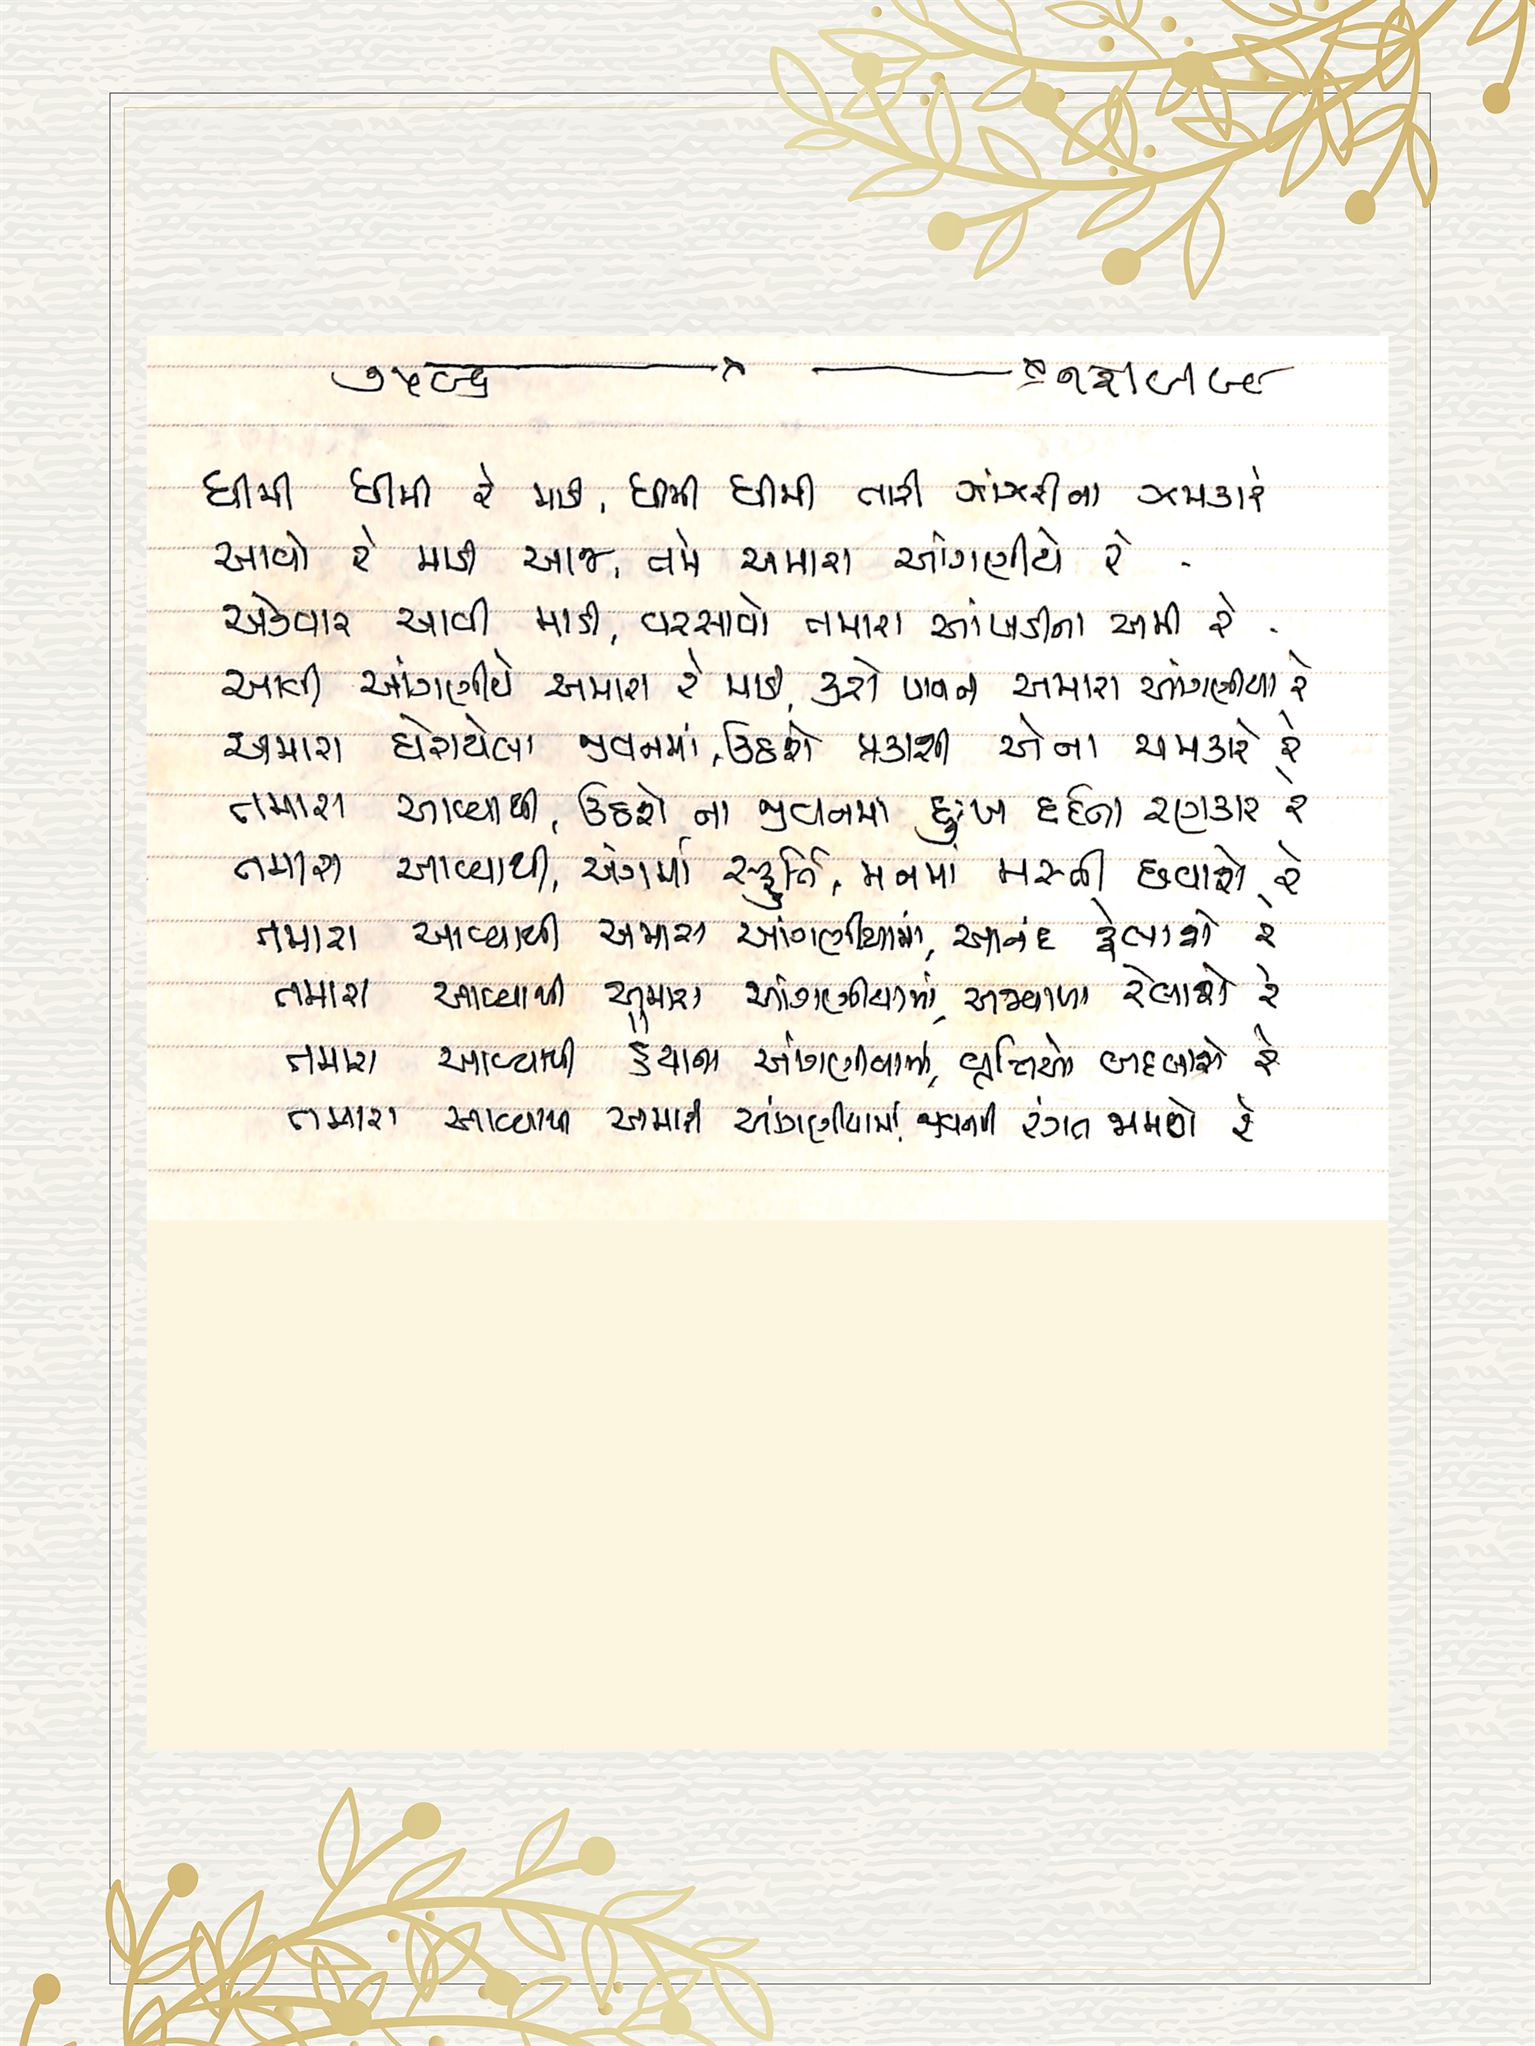 ધીમી ધીમી રે માડી, ધીમી ધીમી તારી ઝાંઝરીના ઝમકારે
આવો રે માડી આજ, તમે અમારા આંગણીયે રે
એકવાર આવી માડી, વરસાવો તમારા આંખડીના અમી રે
આવી આંગણીયે અમારા રે માડી, કરો પાવન અમારા આંગણીયા રે
અમારા ઘેરાયેલા જીવનમાં, ઉઠશે પ્રકાશી એના ચમકારે રે
તમારા આવ્યાથી, ઉઠશે ના જીવનમાં દુઃખ દર્દના રણકાર રે
તમારા આવ્યાથી, અંગમાં સ્ફુર્તિ, મનમાં મસ્તી છવાશે રે
તમારા આવ્યાથી અમારા આંગણીયામાં, આનંદ ફેલાશે રે
તમારા આવ્યાથી અમારા આંગણીયામાં, અજવાળા રેલાશે રે
તમારા આવ્યાથી હૈયાના આંગણીયામાં, વૃત્તિઓ બદલાશે રે
તમારા આવ્યાથી અમારા આંગણીયામાં, જીવનની રંગત જામશે રે